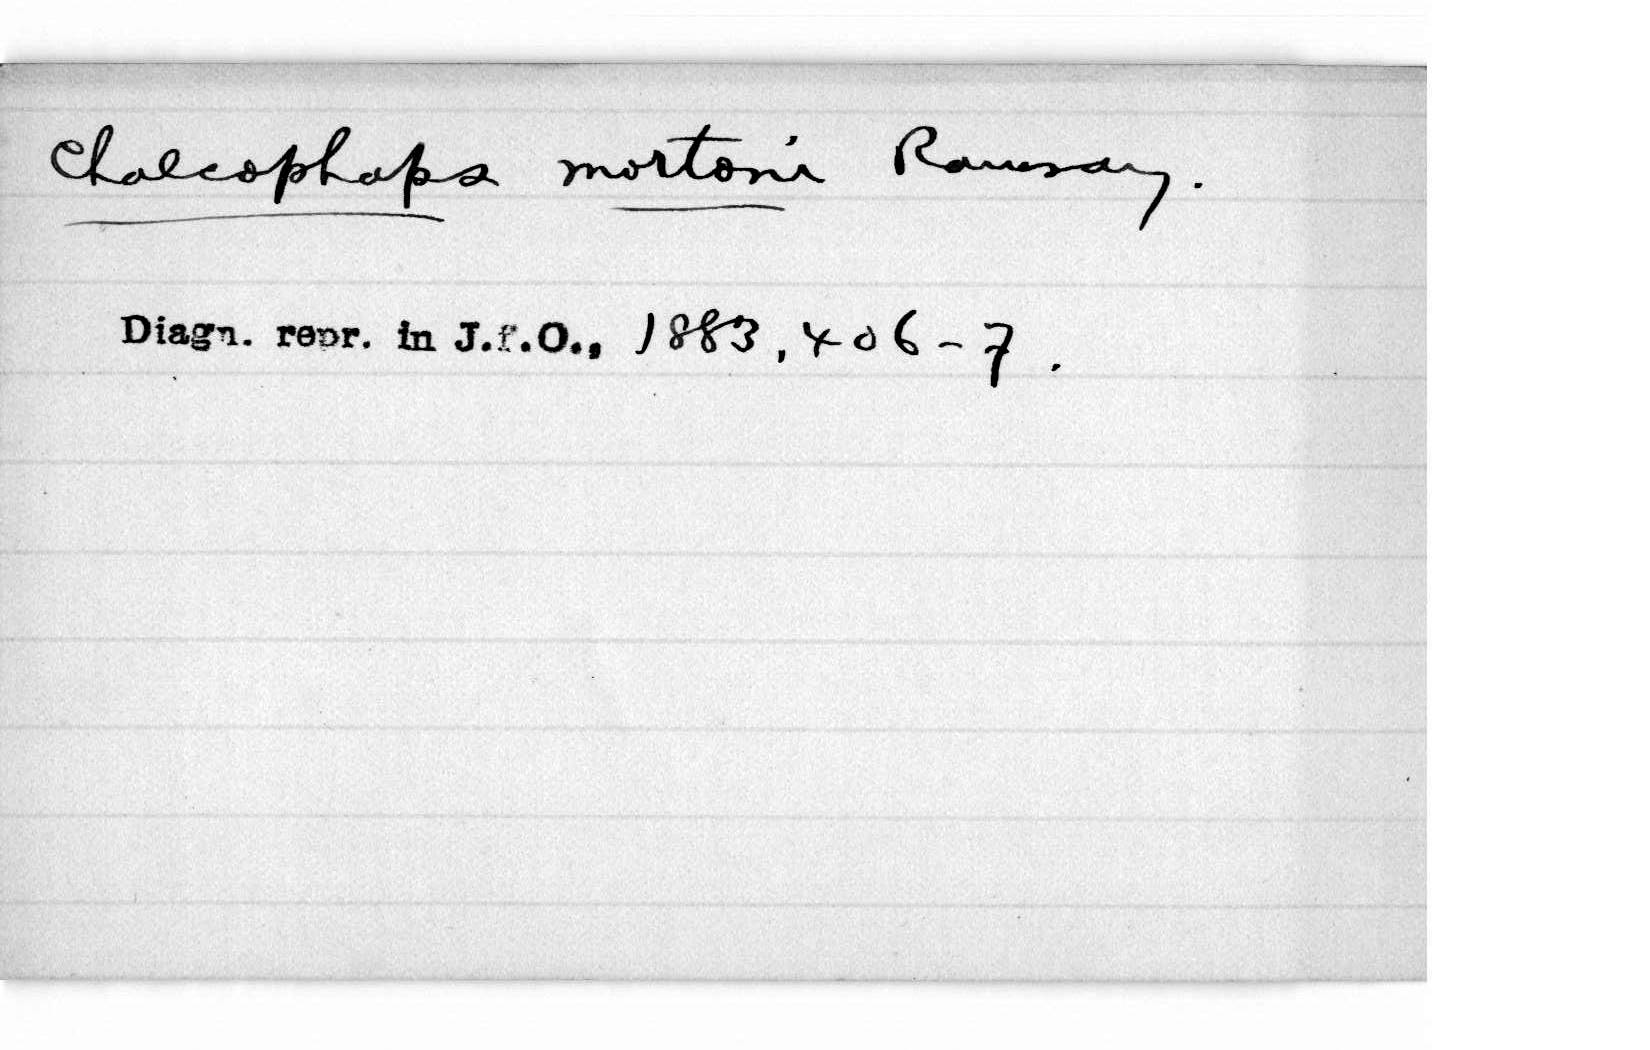 Chalcophaps mortoni Ramsay.
Diagn. repr. in J.f.O., 1883, 406-7.